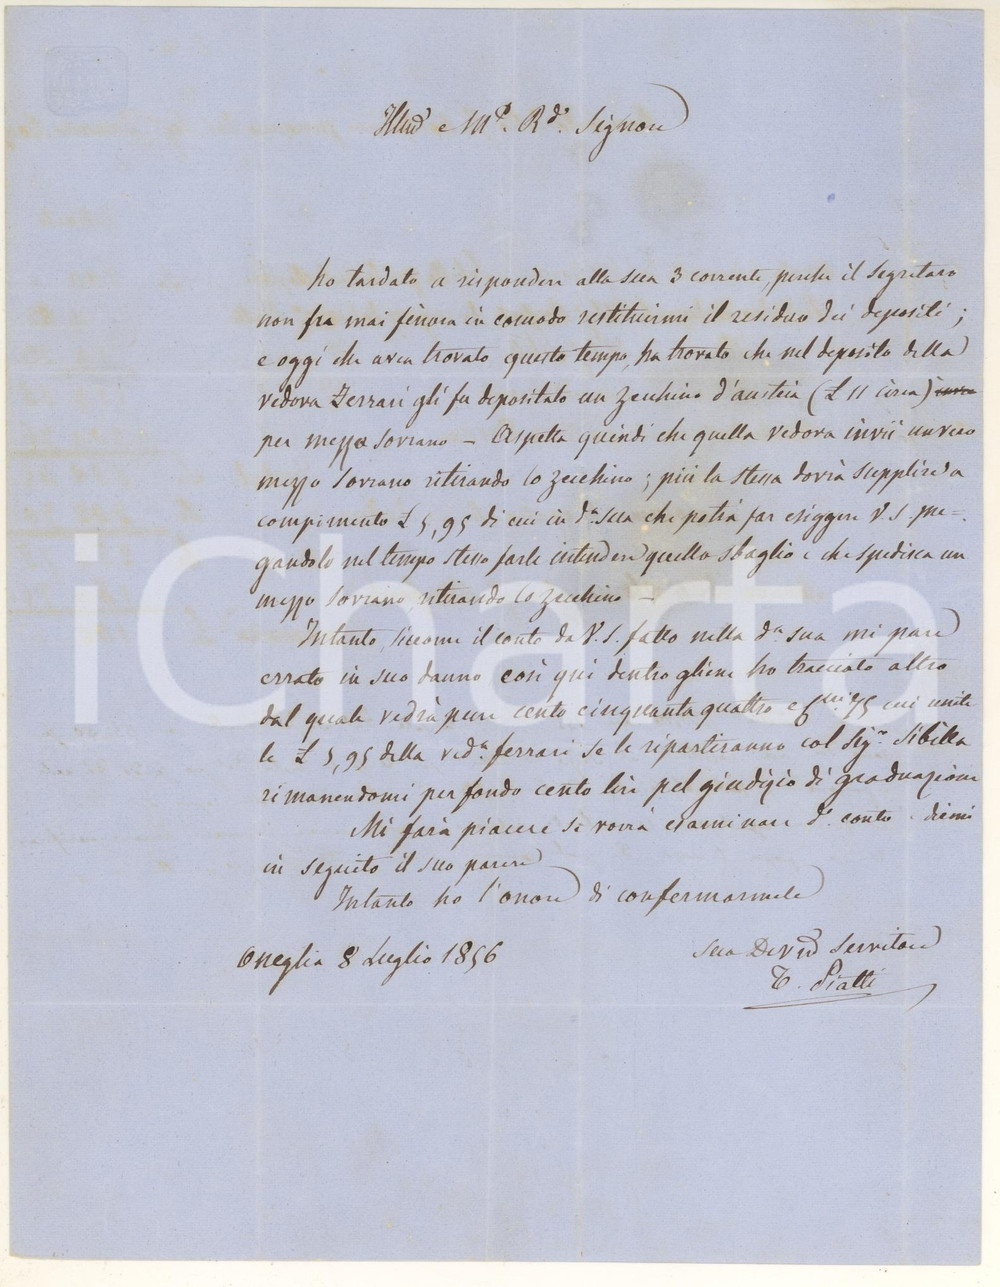 Illmo e M.to R.do Signore
ho tardato a rispondere alla sua 3 corrente, perche il segretaro
non fra mai finora in comodo restituirmi il residuo dei depositi;
e oggi che avea trovato questo tempo, ha trovato che nel deposito della
vedova Ferrari gli fu depositato un zecchino d'austria (£ 11 circa)
per mezzo sovrano – Aspetta quindi che quella vedova invii un vero
mezzo sovrano ritirando lo zecchino; più la stessa dovrà supplire a
compimento £ 5,95 di cui in d.a sua che potrà far esiggere V.S. pre=
gandolo nel tempo stesso farle intendere quello sbaglio e che spedisca un
mezzo sovrano, ritirando lo zecchino –
Intanto, siccome il conto da V.S. fatto nella d.a sua mi pare
errato in suo danno così qui dentro gliene ho tracciato altro
dal quale vedrà pure cento cinquanta quattro e c.mi 75 cui unite
le £ 5,95 della ved.a ferrari se le ripartiranno col Sig.r Sibilla
rimanendomi per fondo cento lire pel giudizio di graduazione
Mi farà piacere se vorrà esaminare d.o conto e dirmi
in seguito il suo parere
Intanto ho l'onore di confermarmele
Oneglia 8 Luglio 1856
Suo Dev.mo Servitore
T. Piatti
iCharta